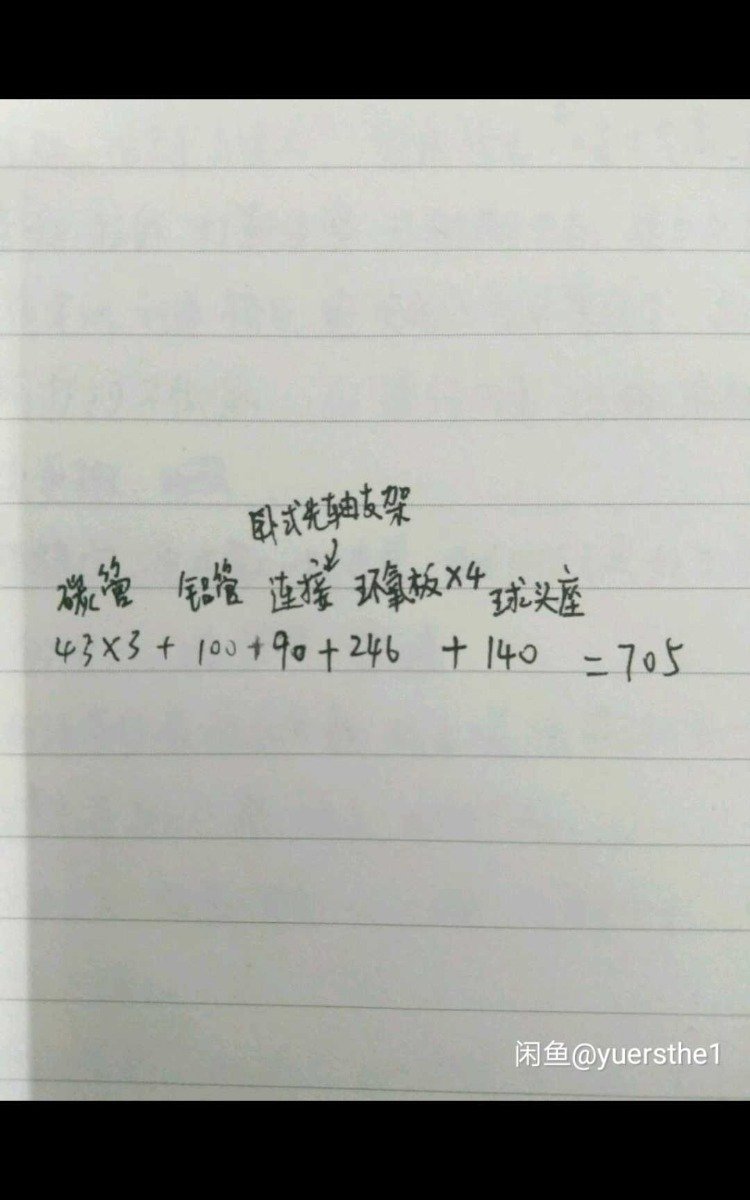 卧式光轴支架
碳管 铝管 连接 环氧板×4 球头座
43×3+100+90+246+140=705
闲鱼@yuersthe1